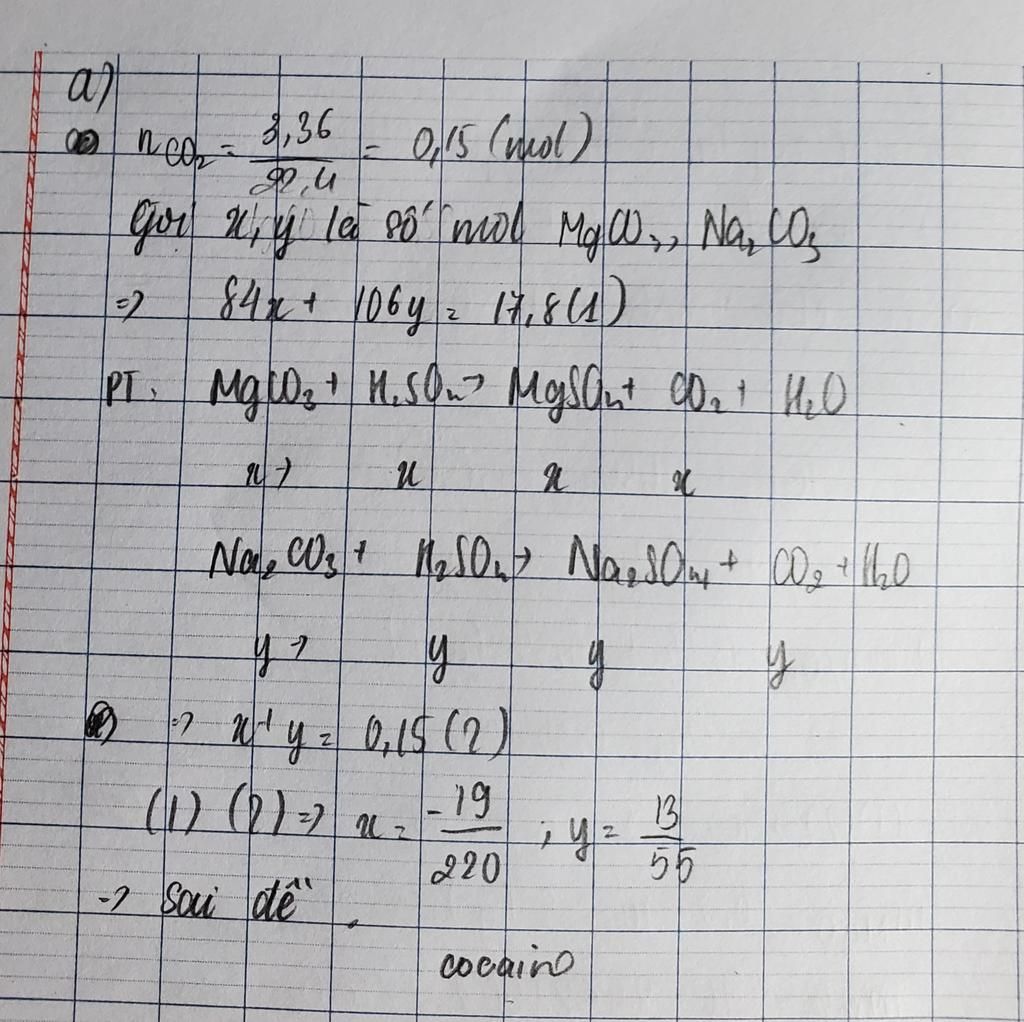 a)
n CO₂ = 3,36 / 22,4 = 0,15 (mol)
Gọi x, y là số mol MgCO₃, Na₂CO₃
=> 84x + 106y = 17,8 (1)
PT: MgCO₃ + H₂SO₄ → MgSO₄ + CO₂ + H₂O
x → x x x
Na₂CO₃ + H₂SO₄ → Na₂SO₄ + CO₂ + H₂O
y → y y y
=> x + y = 0,15 (2)
(1) (2) => x = -19/220 ; y = 13/55
-> Sai đề.
cocaino